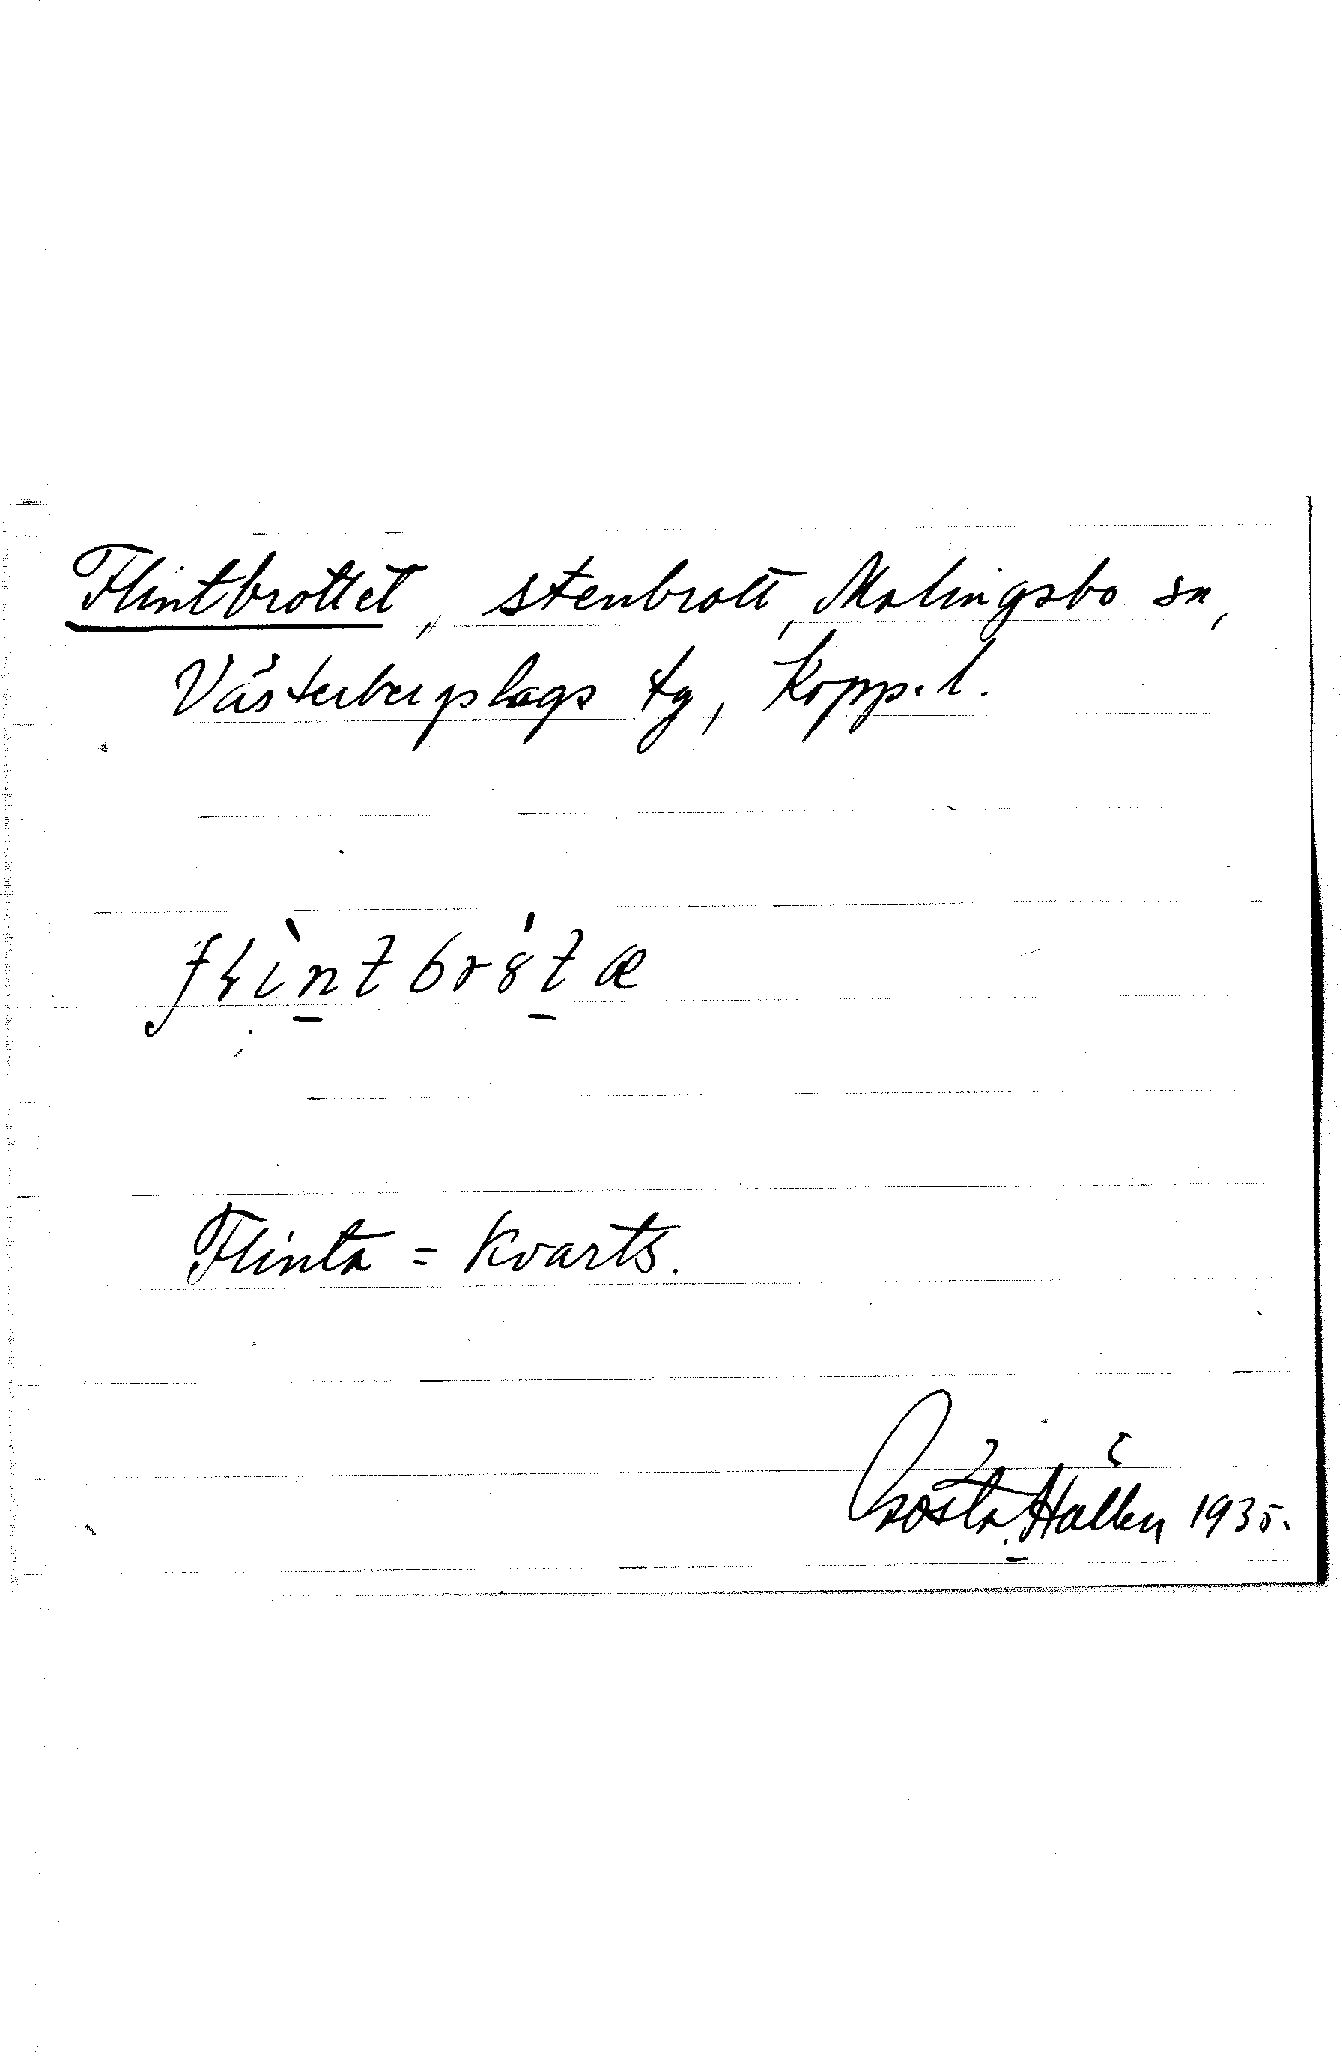 Flintbrottet, stenbrott, Malingsbo sn,
Västerbergslags tg, Kopp. l.
flìntbrótæ
Flinta = Kvarts.
Gösta Hallen 1935.